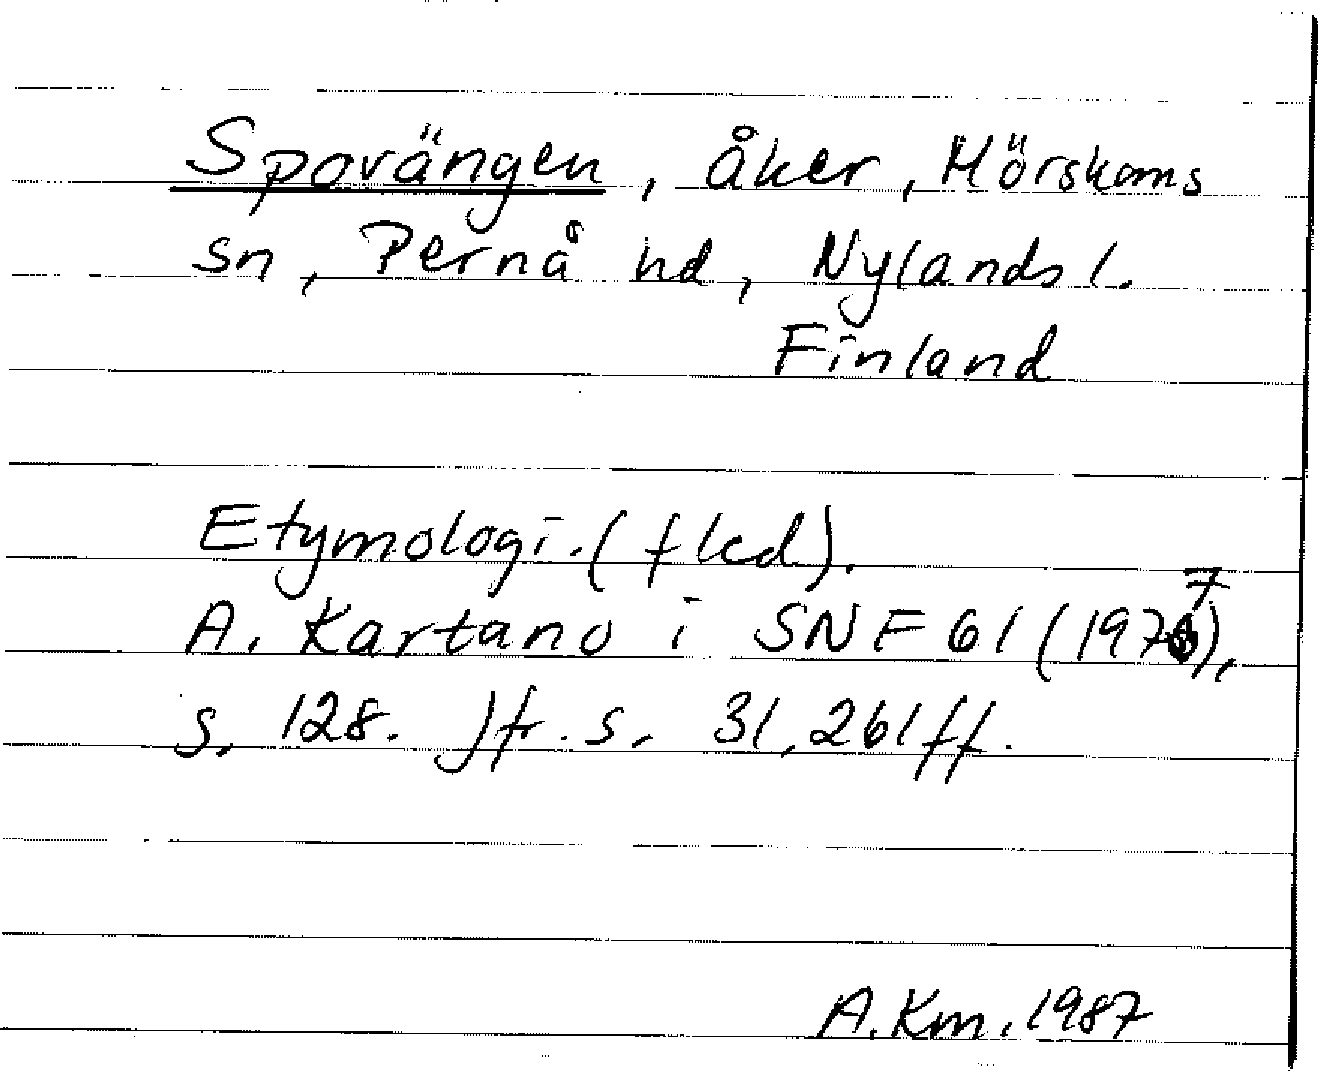 Spovängen, åker, Mörskoms
sn, Pernå hd, Nylands l.
Finland
Etymologi. (fled).
A. Kartano i SNF 61 (1977),
s. 128. Jfr. s. 31, 261 ff.
A.Km. 1987